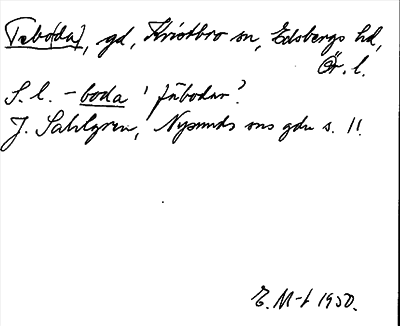 Tabo[da], gd, Kvistbro sn, Edsbergs hd,
Ör. l.
S. l. - boda 'fäbodar'?
J. Sahlgren, Nysunds sns gdn s. 11.
E. M-t 1950.